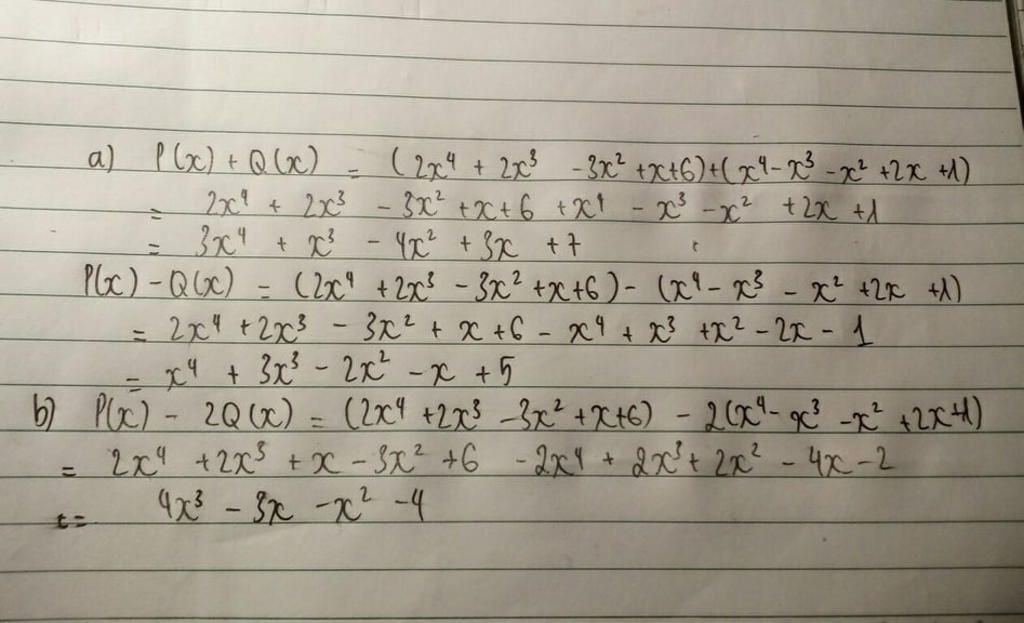 a) P(x) + Q(x) = (2x⁴ + 2x³ - 3x² + x + 6) + (x⁴ - x³ - x² + 2x + 1)
= 2x⁴ + 2x³ - 3x² + x + 6 + x⁴ - x³ - x² + 2x + 1
= 3x⁴ + x³ - 4x² + 3x + 7
P(x) - Q(x) = (2x⁴ + 2x³ - 3x² + x + 6) - (x⁴ - x³ - x² + 2x + 1)
= 2x⁴ + 2x³ - 3x² + x + 6 - x⁴ + x³ + x² - 2x - 1
= x⁴ + 3x³ - 2x² - x + 5
b) P(x) - 2Q(x) = (2x⁴ + 2x³ - 3x² + x + 6) - 2(x⁴ - x³ - x² + 2x + 1)
= 2x⁴ + 2x³ + x - 3x² + 6 - 2x⁴ + 2x³ + 2x² - 4x - 2
= 4x³ - 3x - x² - 4